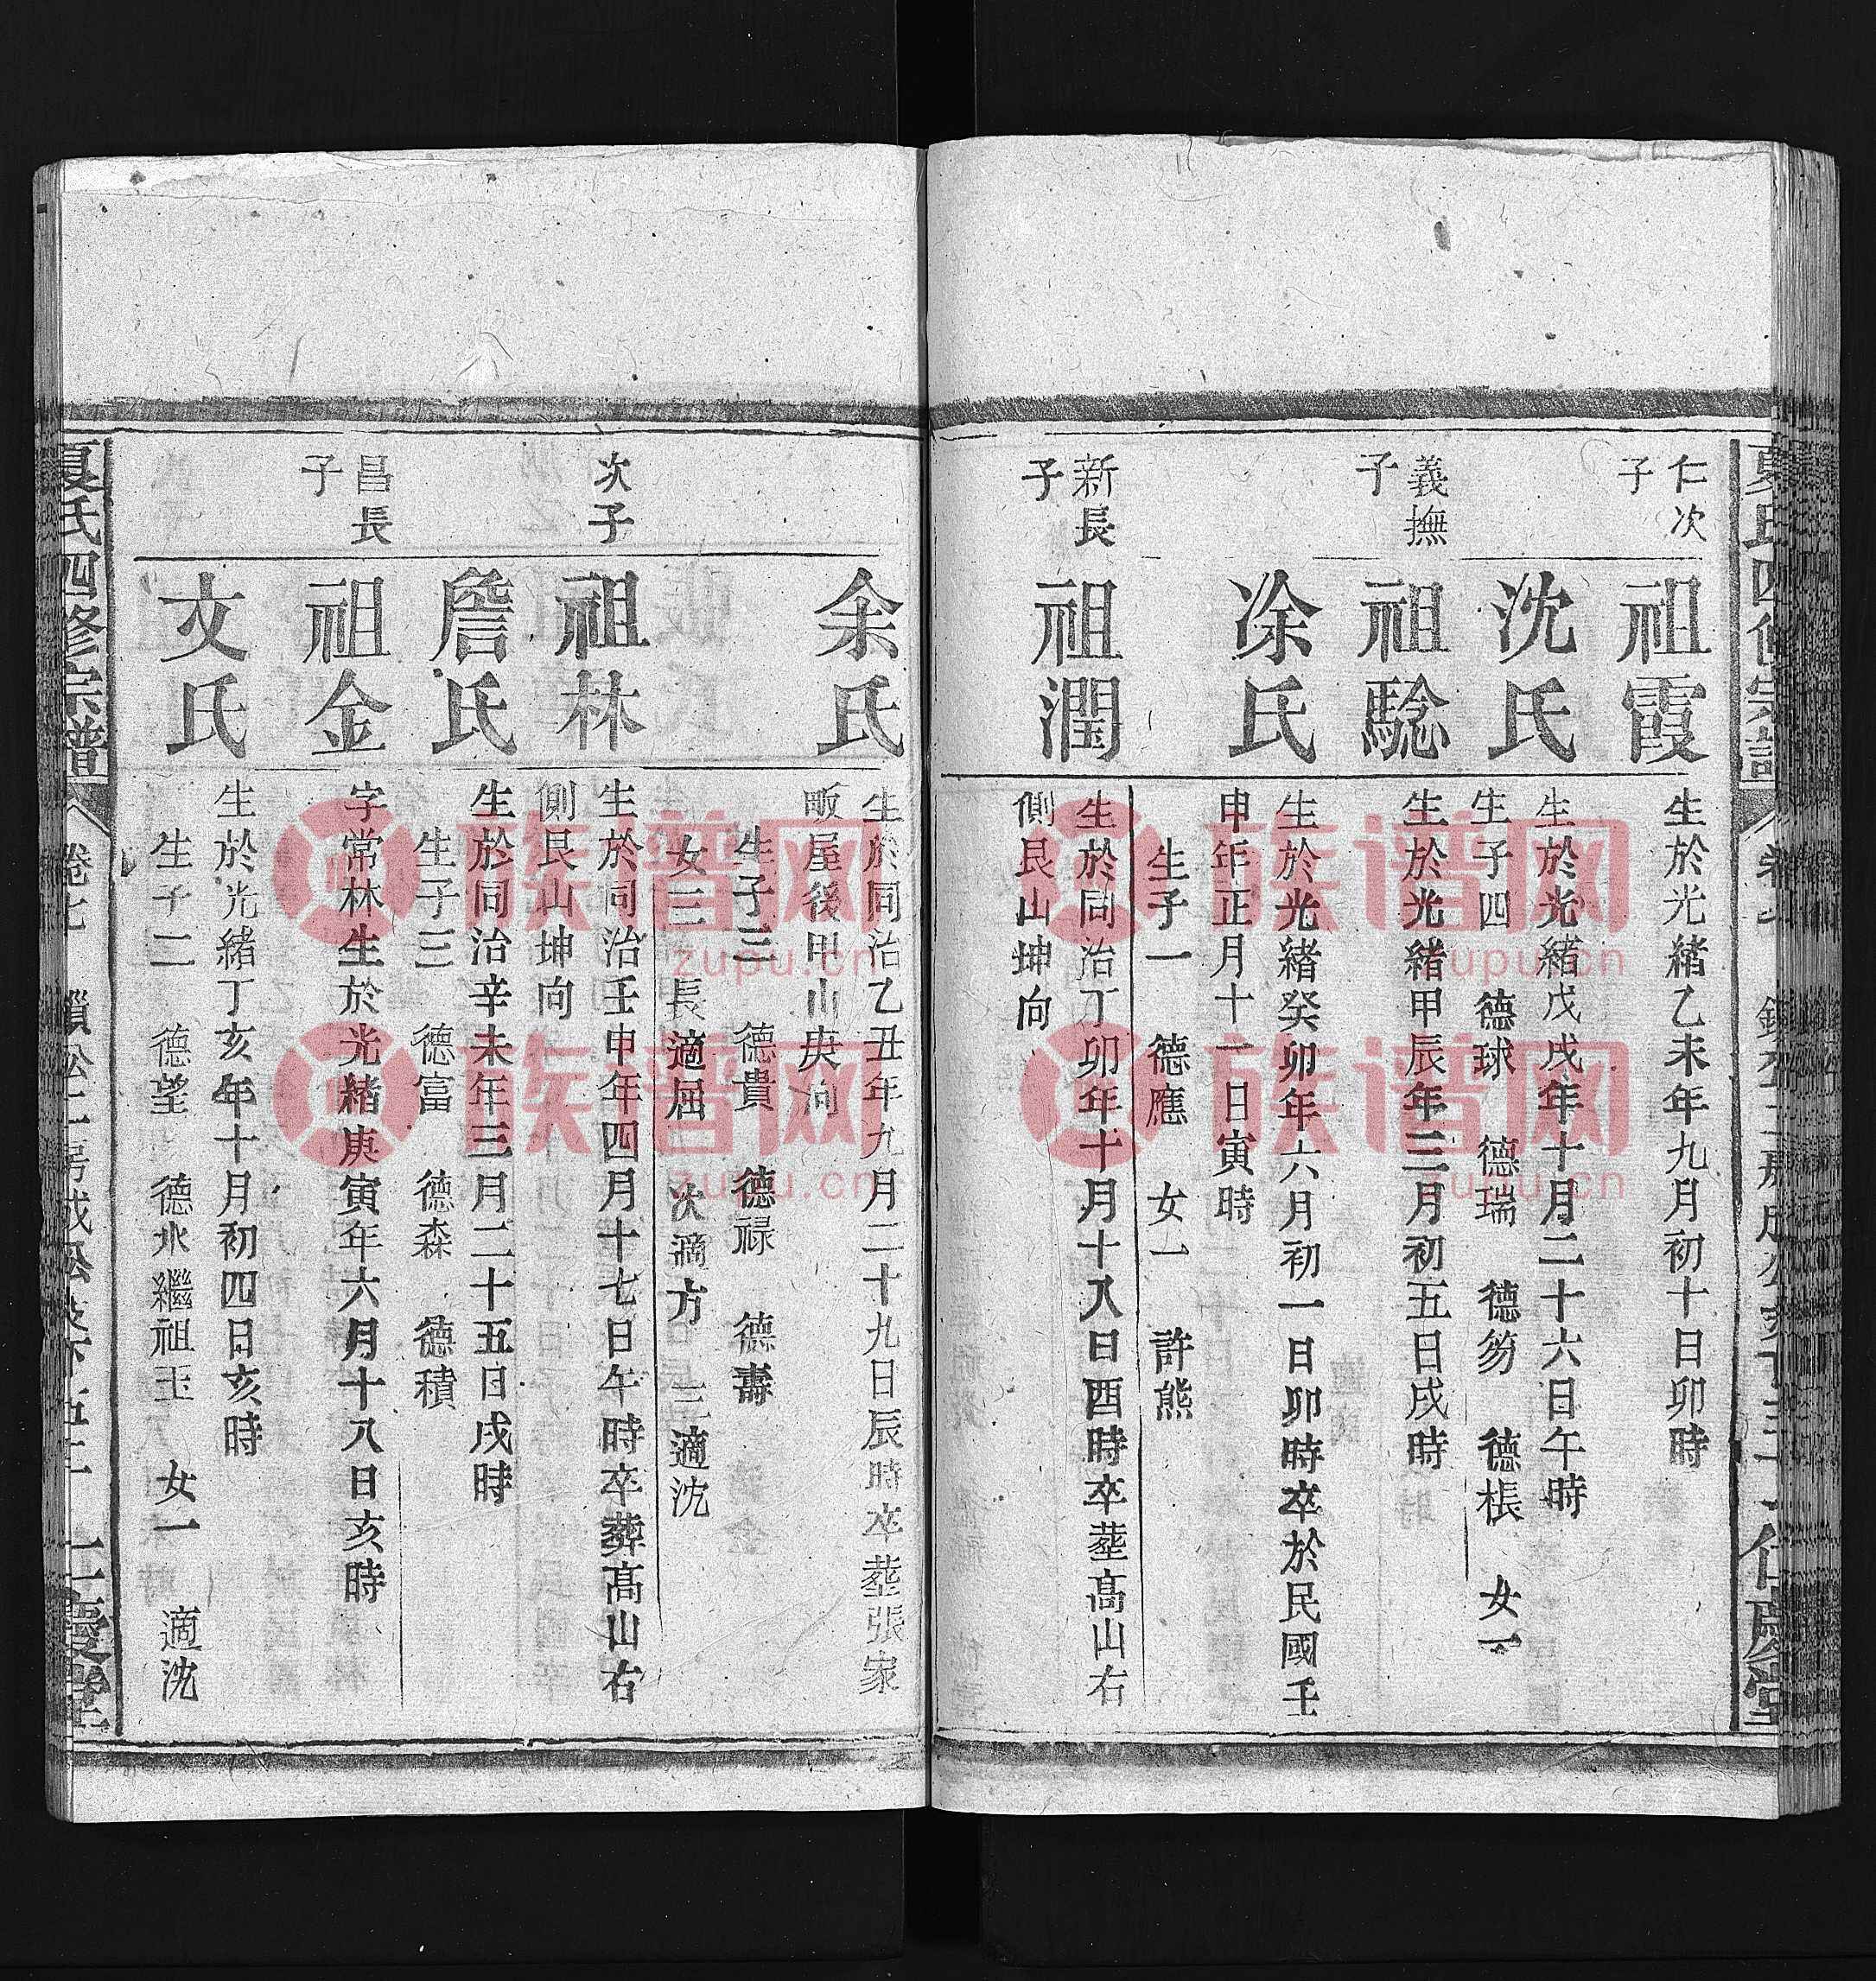 仁次
子
祖霞
生於光緒乙未年九月初十日卯時
沈氏
生於光緒戊戌年十月二十六日午時
生子四 德球 德瑞 德笏 德棖 女一
義撫
子
祖騐
生於光緒甲辰年三月初五日戌時
凃氏
生於光緒癸卯年六月初一日卯時卒於民國壬
申年正月十一日寅時
生子一 德應 女一 許熊
新長
子
祖潤
生於同治丁卯年十月十八日酉時卒塟高山右
側艮山坤向
余氏
生於同治乙丑年九月二十九日辰時卒塟張家
畈屋後甲山庚向
生子三 德貴 德禄 德壽
女三 長適屈 次適方 三適沈
次子
祖林
生於同治壬申年四月十七日午時卒葬髙山右
側艮山坤向
詹氏
生於同治辛未年三月二十五日戌時
生子三 德富 德森 德積
昌長
子
祖金
字常林生於光緒庚寅年六月十八日亥時
文氏
生於光緒丁亥年十月初四日亥時
生子二 德望 德水繼祖玉 女一 適沈
夏氏四修宗譜 卷七
族谱网
zupu.cn
族谱网
zupu.cn
族谱网
zupu.cn
族谱网
zupu.cn